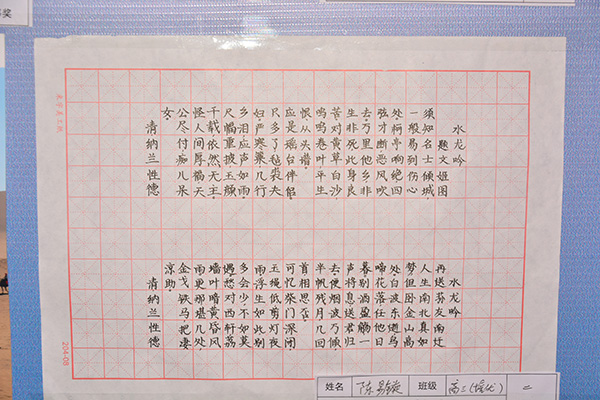 奖
水龙吟
题文姬图
须知名士倾城,
一般易到伤心
处,柯亭响绝,四
弦才断,恶风吹
去。万里他乡,非
生非死,此身良
苦。对黄草白沙,
呜呜卷叶,平生
恨,从头谱。
应是瑶台伴侣,
只多了毡裘夫
妇。严寒觱篥,几行
乡泪,应声如雨。
尺幅重披,玉颜
千载,依然无主。
怪人间厚福,天
公尽付,痴儿呆
女。
清 纳兰性德
水龙吟
再送荪友南还
人生南北真如
梦,但卧金山高
处。白波东逝,鸟
啼花落,任他日
暮。别酒盈觞,一
声将息,送君归
去。便烟波万倾,
半帆残月,几回
首,相思否。
可忆柴门深闭,
玉绳低,剪灯夜
雨。浮生如此,别
多会少,不如莫
遇。愁对西轩,荔
墙叶暗,黄昏风
雨。更那堪几处,
金戈铁马,把凄
凉助。
清 纳兰性德
204-05
姓名 陈 班级 高二(培优) 二